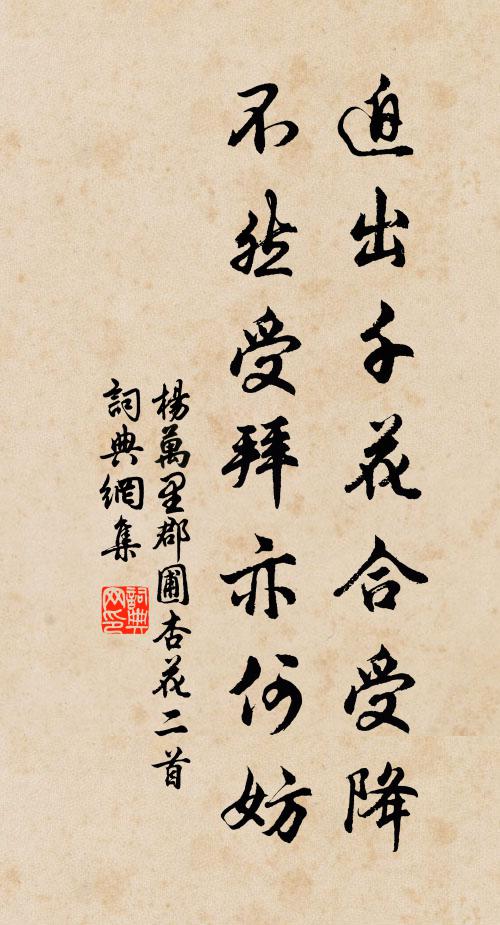 逈出千花合受降
不然受拜亦何妨
楊萬里郡圃杏花二首
詞典網集
詞典
网印